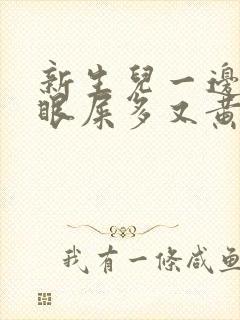 新生兒一邊
眼屎多又黃
我有一條咸魚